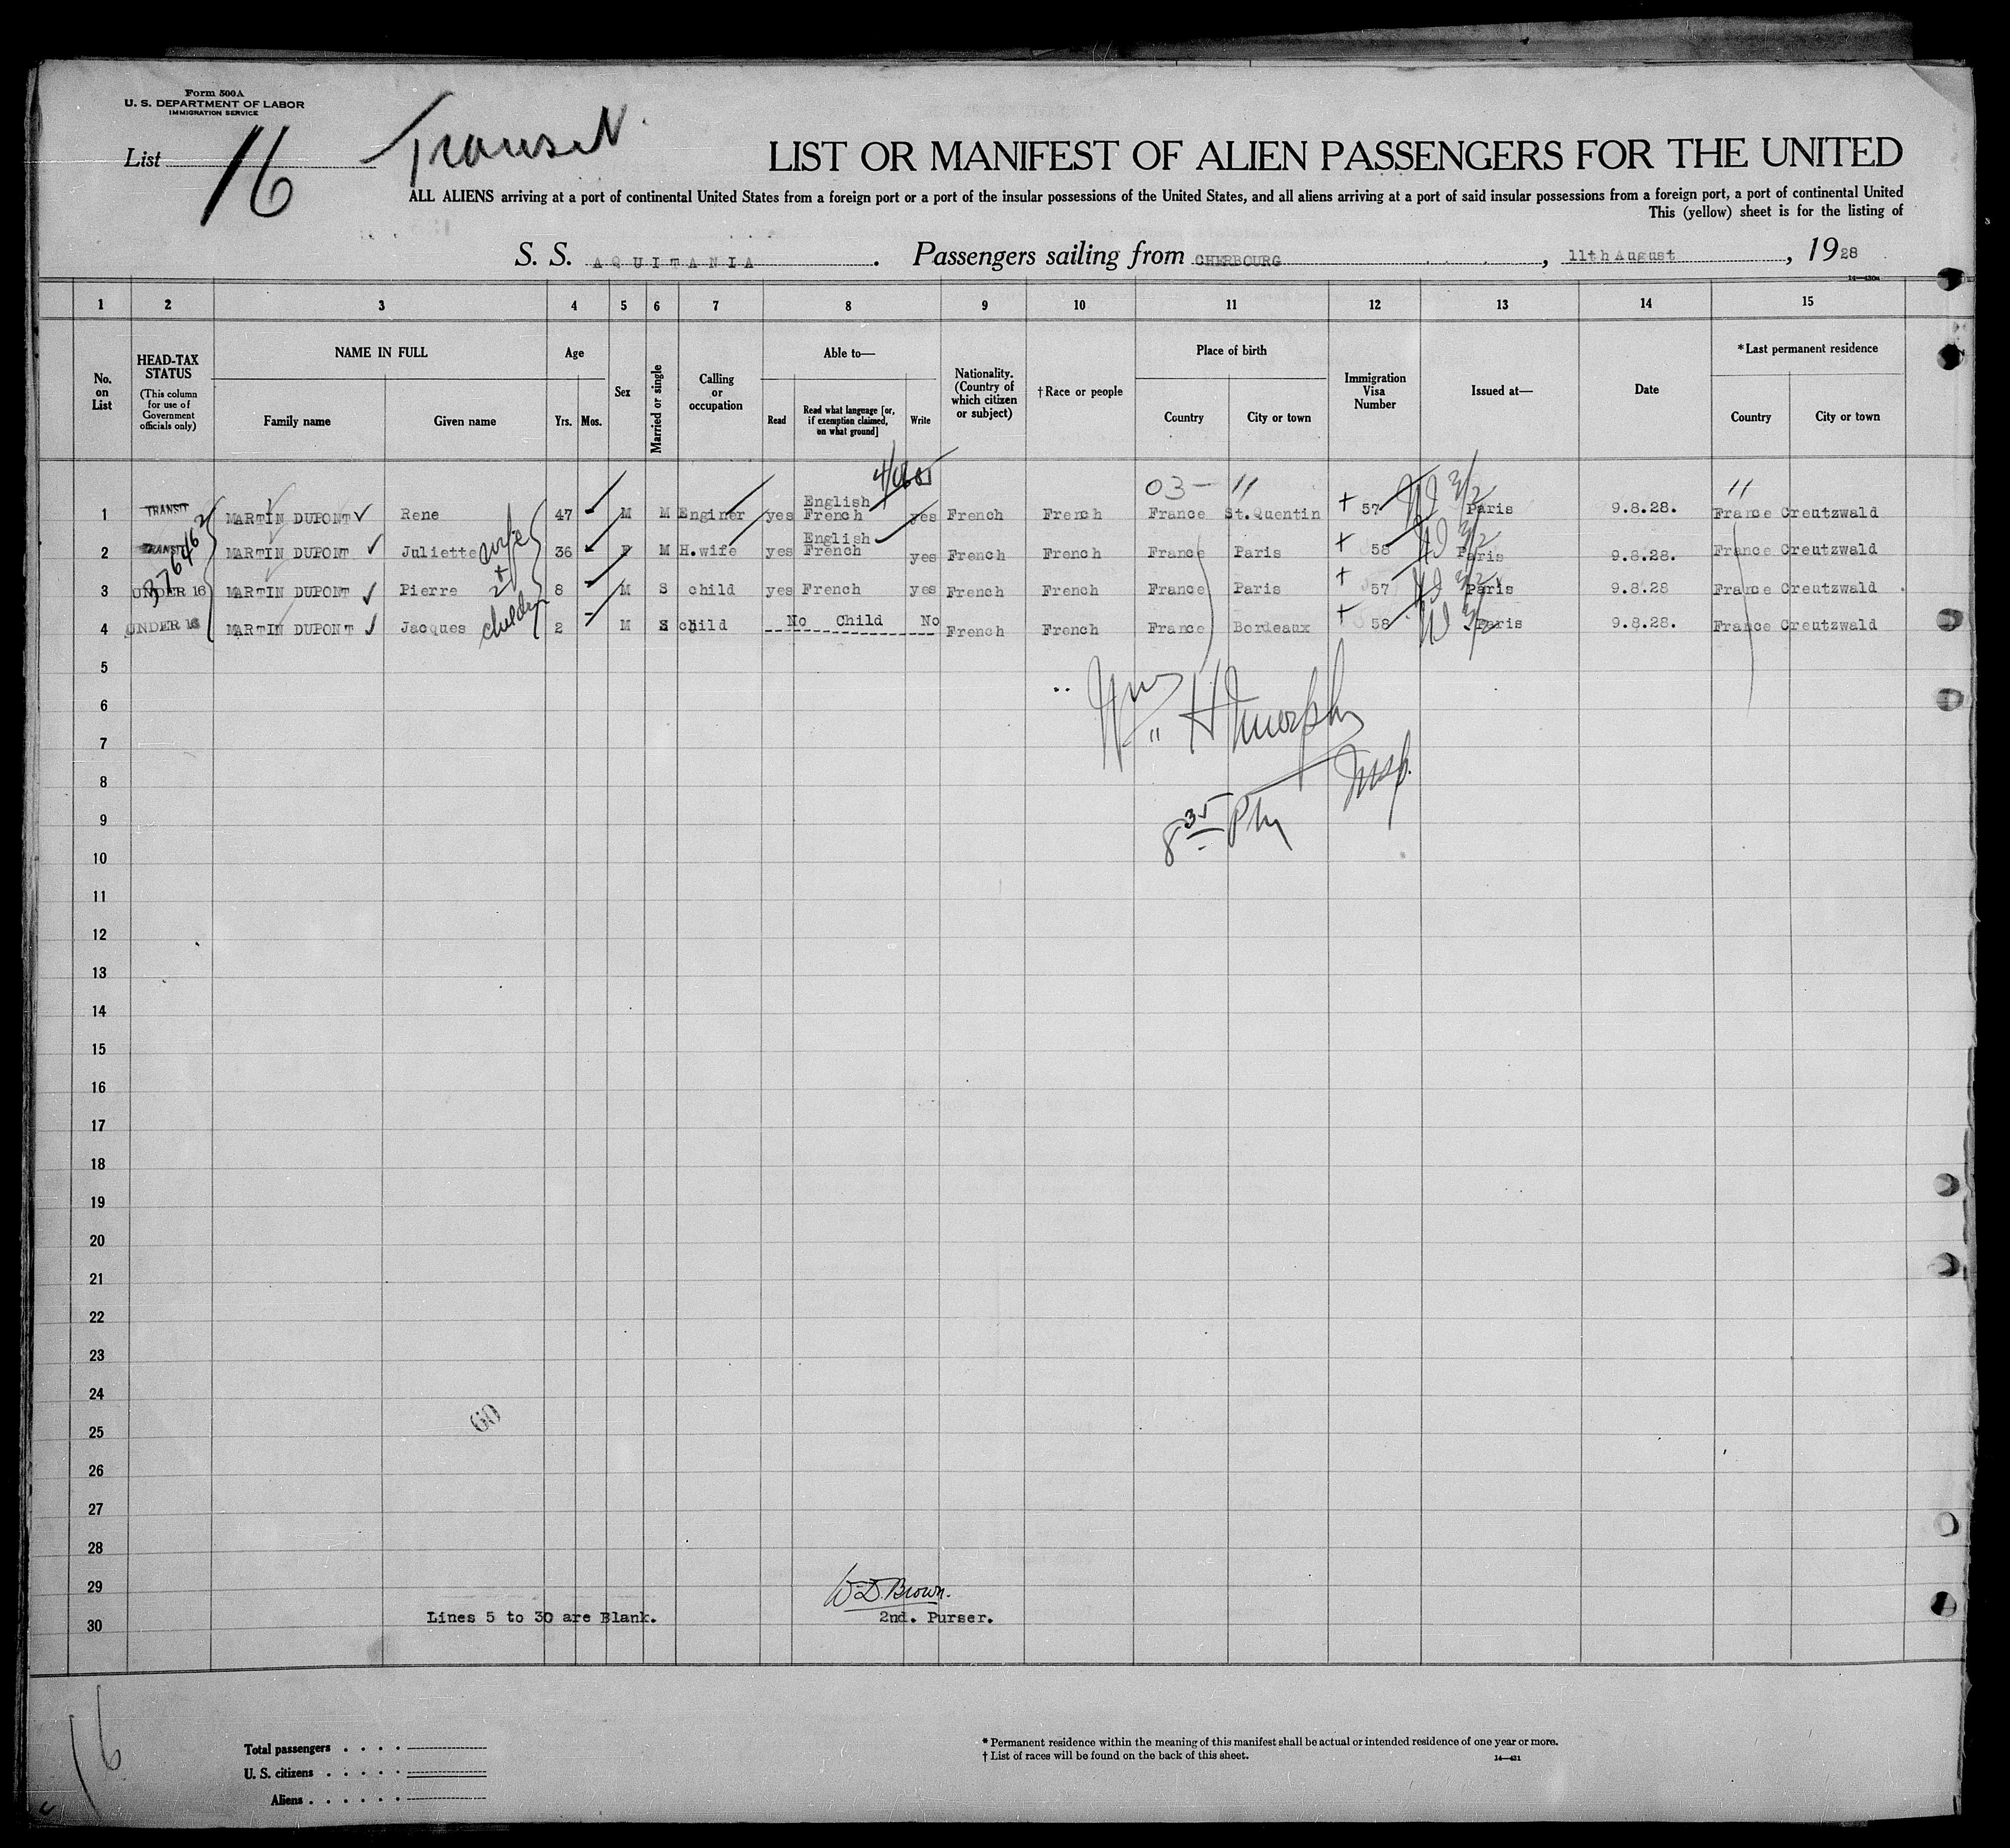 Form 500A
U. S. DEPARTMENT OF LABOR
IMMIGRATION SERVICE
List 16 Transit
LIST OR MANIFEST OF ALIEN PASSENGERS FOR THE UNITED
ALL ALIENS arriving at a port of continental United States from a foreign port or a port of the insular possessions of the United States, and all aliens arriving at a port of said insular possessions from a foreign port, a port of continental United
This (yellow) sheet is for the listing of
S. S. AQUITANIA. Passengers sailing from CHERBOURG, 11th August, 1928
1 2 3 4 5 6 7 8 9 10 11 12 13 14 15
No. on List
HEAD-TAX STATUS
(This column for use of Government officials only)
NAME IN FULL
Family name Given name
Age
Yrs. Mos.
Sex
Married or single
Calling or occupation
Able to—
Read
Read what language [or, if exemption claimed, on what ground]
Write
Nationality. (Country of which citizen or subject)
†Race or people
Place of birth
Country City or town
Immigration Visa Number
Issued at—
Date
*Last permanent residence
Country City or town
03 – 11 11
1 TRANSIT MARTIN DUPONT Rene 47 M M Enginer yes English French yes French French France St.Quentin 57 Paris 9.8.28. France Creutzwald
2 TRANSIT MARTIN DUPONT Juliette wife 36 F M H.wife yes English French yes French French France Paris 58 Paris 9.8.28. France Creutzwald
3 UNDER 16 MARTIN DUPONT Pierre + 2 8 M S child yes French yes French French France Paris 57 Paris 9.8.28 France Creutzwald
4 UNDER 16 MARTIN DUPONT Jacques children 2 M S child No Child No French French France Bordeaux 58 Paris 9.8.28. France Creutzwald
5
6
Wm H Murphy
7
8
Insp.
9
8 35 PM
10
11
12
13
14
15
16
17
18
19
20
21
22
23
24
60
25
26
27
28
29
W D Brown.
30 Lines 5 to 30 are Blank. 2nd. Purser.
16
Total passengers . . . .
U. S. citizens . . . . .
Aliens . . . . . .
* Permanent residence within the meaning of this manifest shall be actual or intended residence of one year or more.
† List of races will be found on the back of this sheet.
14—421